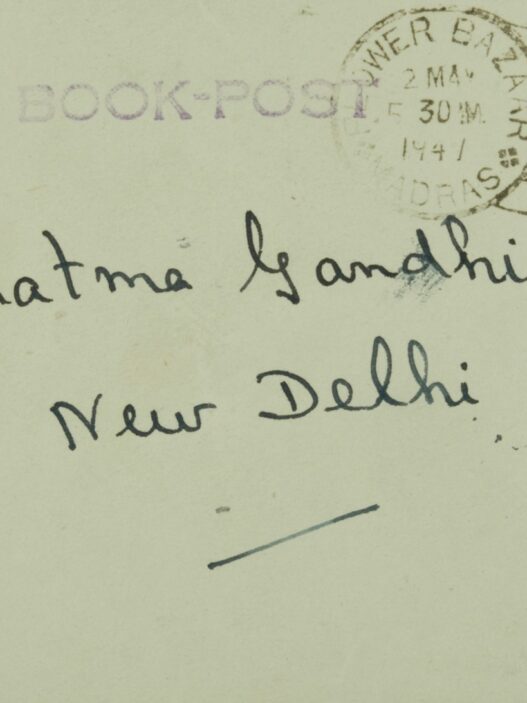 BOOK-POST
FLOWER BAZAAR
2 MAY
5 30 PM
1947
MADRAS
hatma Gandhi
New Delhi